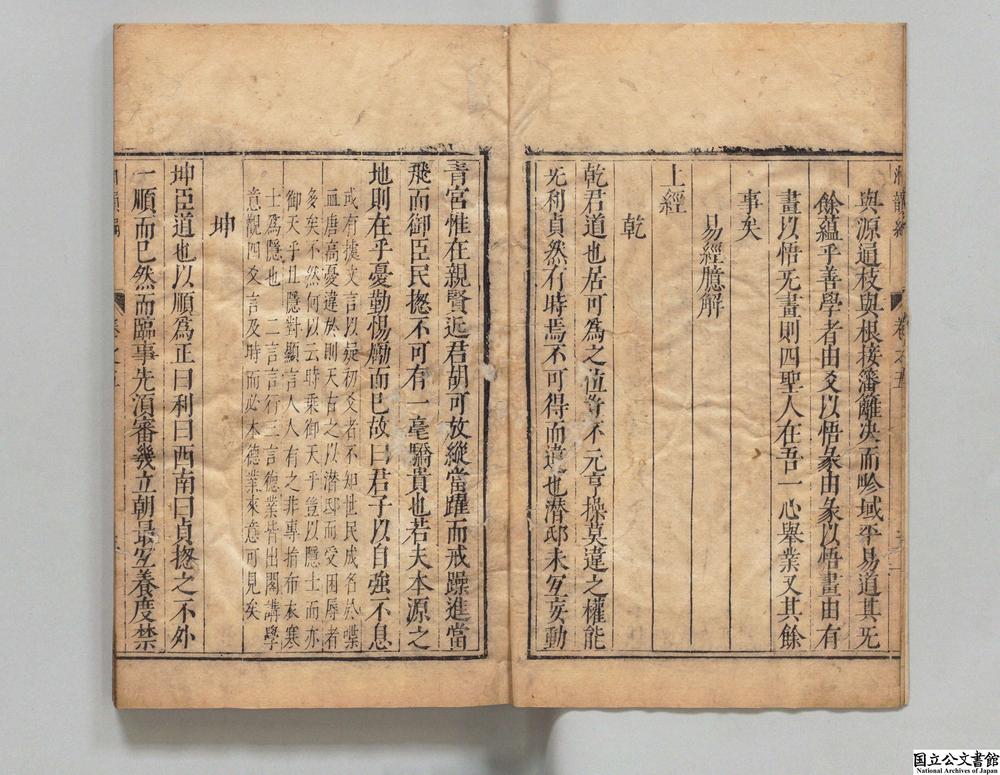 與源逅枝與根接籓籬决而畛域平易道其无
餘蘊乎善學者由爻以悟彖由彖以悟畫由有
畫以悟无畫則四聖人在吾一心舉業又其餘
事矣
易經臆解
上經
乾
乾君道也居可為之位奮不元亨操莫違之權能
旡利貞然有時焉不可得而違也潜邸未宜妄動
青宮惟在親賢近君胡可放縱當躍而戒躁進當
飛而御臣民揔不可有一毫驕貴也若夫本源之
地則在乎憂勤惕勵而已故曰君子以自強不息
或有據文言以疑初爻者不知世民成名於喋
血唐高憂違於則天古之以潜邸而受困辱者
多矣不然何以云時乘御天乎豈以隱士而亦
御天乎且隱對顯言人人有之非專指布衣寒
士為隱也 二言言行三言德業皆出閣講學
意觀四爻言及時而必本德業來意可見矣
坤
坤臣道也以順為正曰利曰西南曰貞揔之不外
一順而已然而臨事先湏審幾立朝最宜養度禁
卷之五
国立公文書館
National Archives of Japan